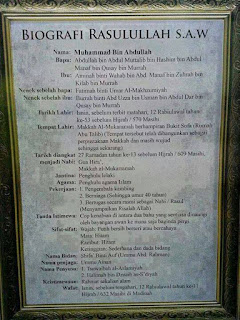 BIOGRAFI RASULULLAH S.A.W
Nama: Muhammad Bin Abdullah
Bapa: Abdullah bin Abdul Muttalib bin Hashim bin Abdul
Manaf bin Qusay bin Murrah
Ibu: Aminah binti Wahab bin Abd. Manaf bin Zuhrah bin
Kilab bin Murrah
Nenek sebelah bapa: Fatimah binti Umar Al-Makhzumiyyah
Nenek sebelah ibu: Barrah binti Abd Uzza bin Usman bin Abdul Dar bin
Qusay bin Murrah
Tarikh Lahir: Isnin, sebelum terbit matahari, 12 Rabiulawal tahun
ke-53 sebelum Hijrah / 570 Masihi
Tempat Lahir: Makkah Al-Mukarramah berhampiran Bukit Sofa (Rumah
Abu Talib) (Tempat tersebut telah dibangunkan sebagai
perpustakaan Makkah dan masih wujud
sehingga sekarang)
Tarikh diangkat 27 Ramadan tahun ke-13 sebelum Hijrah / 609 Masihi,
menjadi Nabi: Gua Hira',
Makkah Al-Mukarramah
Jawatan: Penghulu lelaki
Agama: Penghulu agama Islam
Pekerjaan: 1. Pengembala kambing
2. Berniaga (Sehingga umur 40 tahun)
3. Berniaga secara murni sebagai Nabi / Rasul
(Menyampaikan Risalah Allah)
Tanda Istimewa: Cop kerasulan di antara dua bahu yang sentiasa dinaungi
oleh bayangan awan ke mana saja baginda pergi
Sifat-sifat: Wajah: Putih bersih berseri atau bercahaya
Mata: Hitam
Rambut: Hitam
Ketinggian: Sederhana dan dada bidang
Nama Bidan: Shifa, Ibnu Auf (Ummu Abd. Rahman)
Nama penjaga: Ummu Aiman
Nama Penyusu: 1. Thuwaibah al-Aslamiyyah
2. Halimah bin Dueib as-Sa'diyah
Keistimewaan: Rahmat sekalian alam
Wafat: Isnin, sebelum tergelincir matahari, 12 Rabiulawal tahun ke 11
Hijrah / 632 Masihi di Madinah